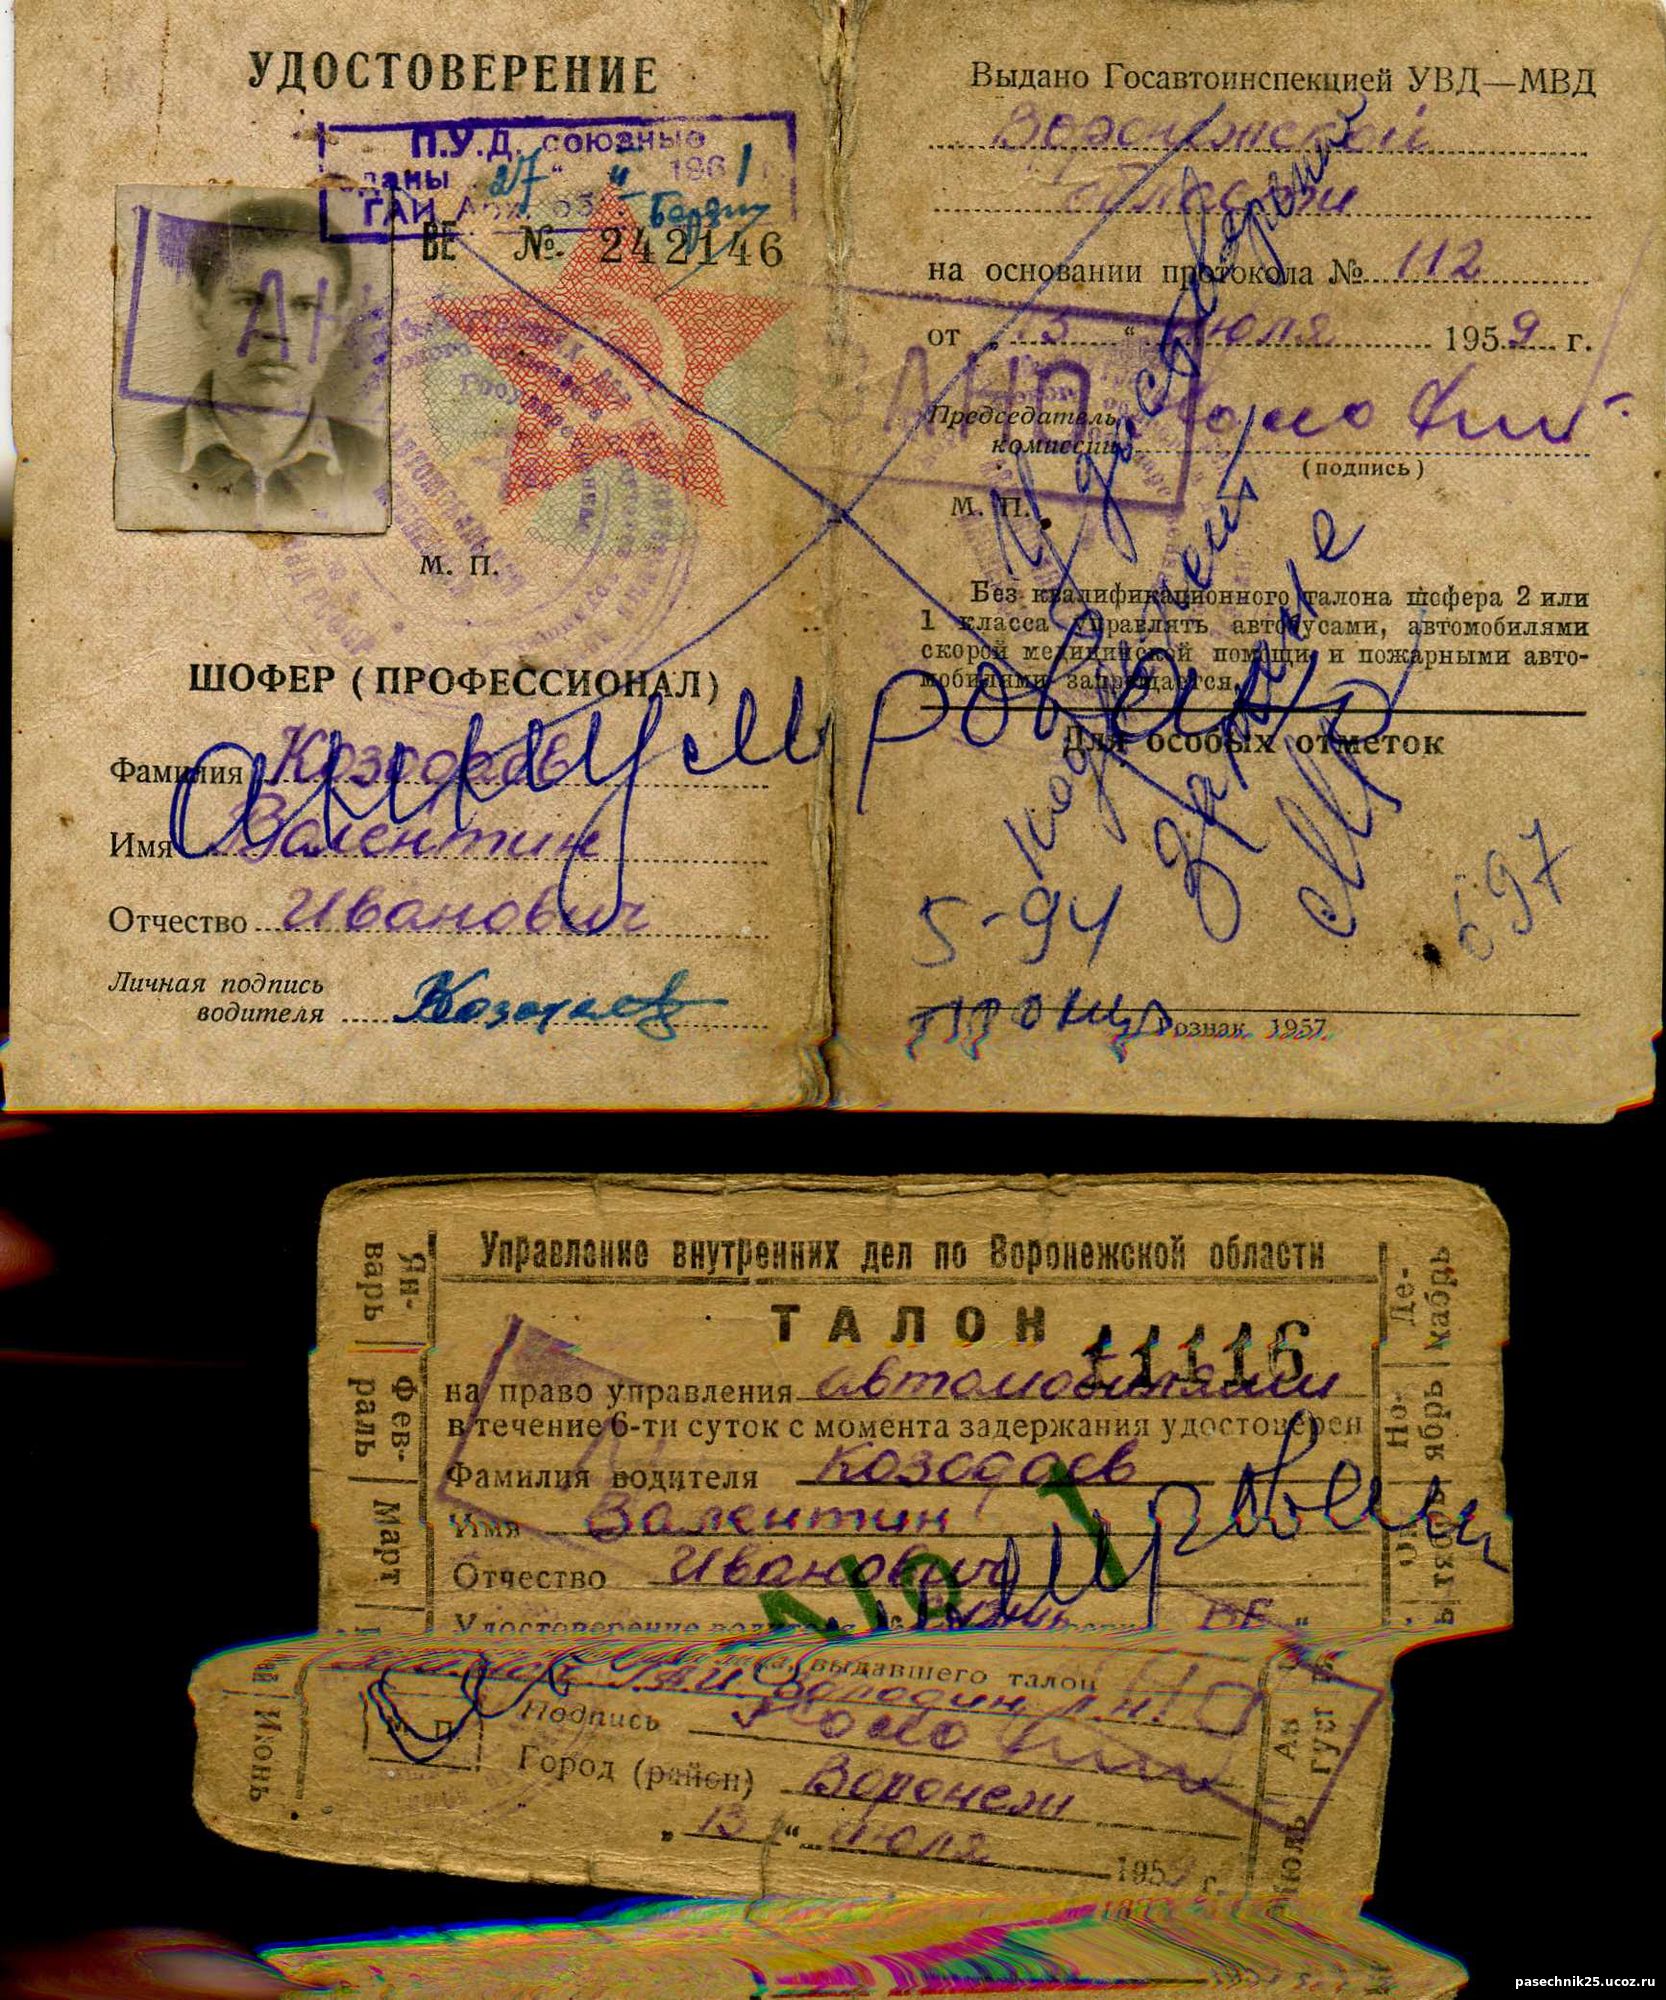 УДОСТОВЕРЕНИЕ
П.У.Д. союзные
сданы „27“ 11 1961 г.
ГАИ
ВЕ № 242146
М. П.
ШОФЕР (ПРОФЕССИОНАЛ)
Фамилия Козодаев
Имя Валентин
Отчество Иванович
Личная подпись
водителя Козодаев
аннулирован
Выдано Госавтоинспекцией УВД—МВД
Воронежской
области
на основании протокола № 112
от „13“ июля 1959 г.
Председатель
комиссии
(подпись)
М. П.
Без квалификационного талона шофера 2 или
1 класса управлять автобусами, автомобилями
скорой медицинской помощи и пожарными авто-
мобилями запрещается.
Для особых отметок
Удостоверение
5-94
697
Гознак. 1957.
Управление внутренних дел по Воронежской области
ТАЛОН 11116
на право управления автомобилями
в течение 6-ти суток с момента задержания удостоверен
Фамилия водителя Козодаев
Имя Валентин
Отчество Иванович
Удостоверение водителя ВЕ
выдавшего талон
Подпись
Город (район) Воронеж
„13“ июля 195 г.
Ян-
варь
Фев-
раль
Март
Июнь
Июль
Ав
густ
Ок
тябрь
Но-
ябрь
Де-
кабрь
pasechnik25.ucoz.ru